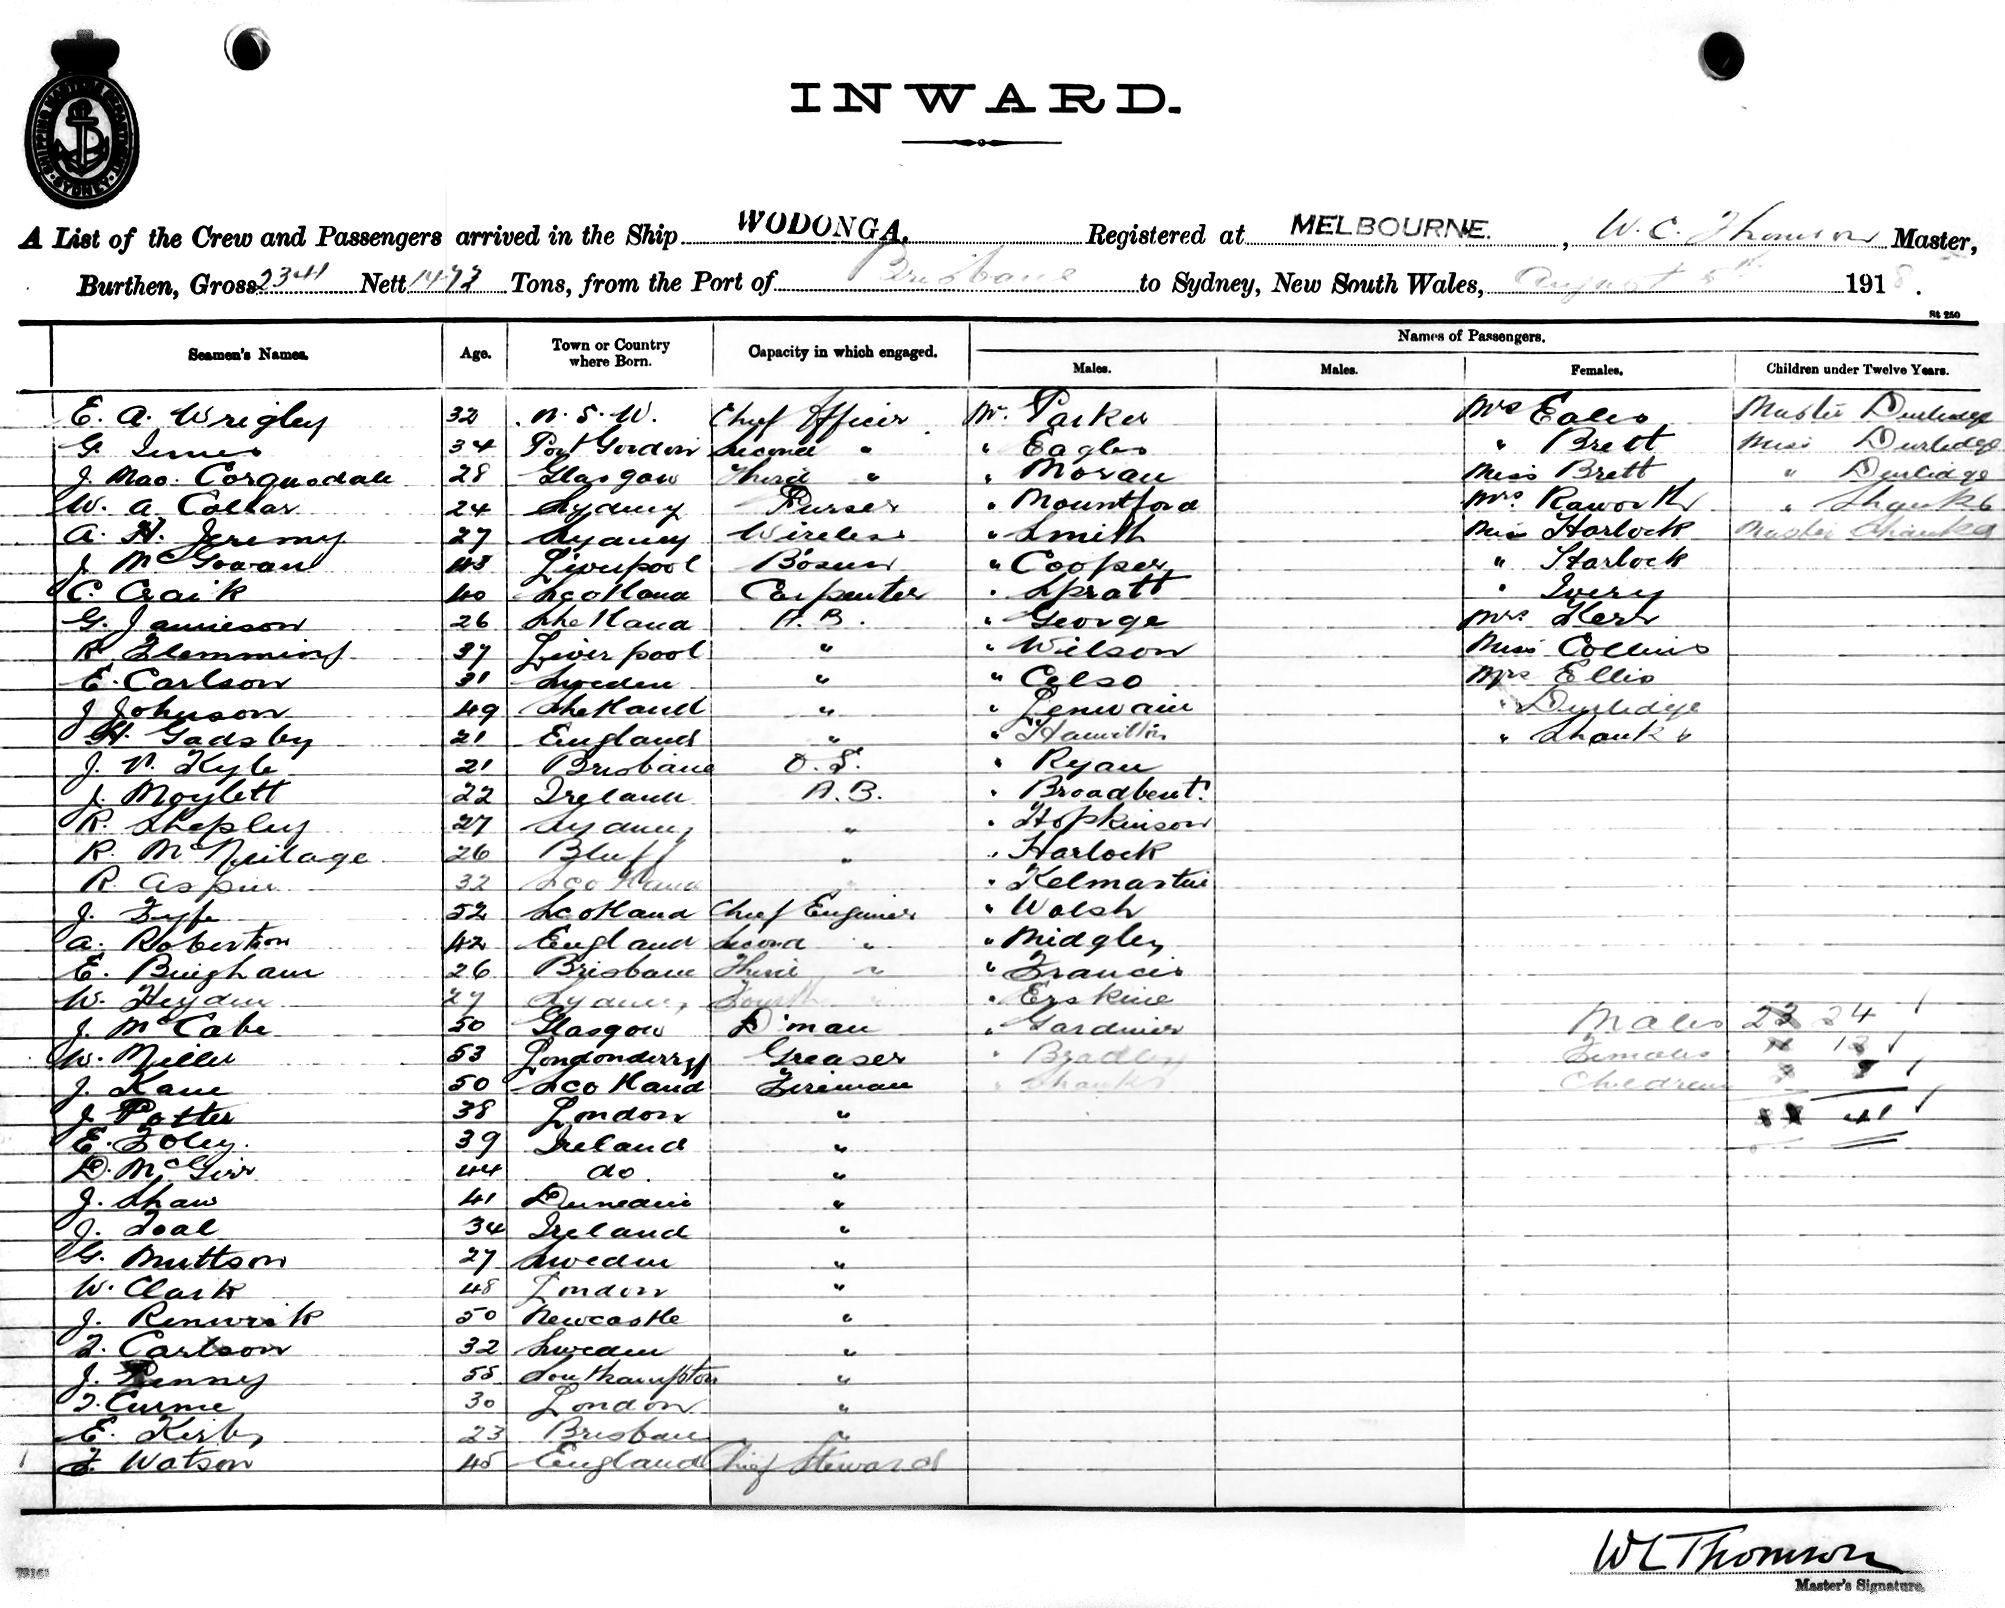 INWARD.
SHIPPING MASTER'S DEPARTMENT SYDNEY
A List of the Crew and Passengers arrived in the Ship WODONGA. Registered at MELBOURNE. , W. C. Thomson Master,
Burthen, Gross 2341 Nett 1473 Tons, from the Port of Brisbane to Sydney, New South Wales, August 5th 1918.
St 250
Names of Passengers.
Seamen's Names. Age. Town or Country where Born. Capacity in which engaged. Males. Males. Females. Children under Twelve Years.
E. A. Wrigley 32 N. S. W. Chief Officer Mr. Parker Mrs Eales Master Durlidge
G. Innes 34 Port Gordon Second " " Eagles " Brett Miss Durlidge
J. Mac. Corquodale 28 Glasgow Third " " Moran Miss Brett " Durlidge
W. A. Collar 24 Sydney Purser " Mountford Mrs. Raworth " Shanks
A. H. Jeremy 27 Sydney Wireless " Smith Miss Harlock Master Shanks
J. McGowan 43 Liverpool Bosun " Cooper " Harlock
C. Craik 40 Scotland Carpenter " Spratt " Ivery
G. Jamieson 26 Shetland A. B. " George Mrs Kerr
R. Flemming 37 Liverpool " " Wilson Miss Collins
E. Carlson 31 Sweden " " Celso Mrs Ellis
J Johnson 49 Shetland " " Lenwain " Durlidge
H. Gadsby 21 England " " Hamilton " Shanks
J. N. Kyle 21 Brisbane O. S. " Ryan
J. Moylett 22 Ireland A. B. " Broadbent
R. Shepley 27 Sydney " " Hopkinson
R. McNeilage 26 Bluff " " Harlock
R. Aspin 32 Scotland " " Kelmartin
J. Fyfe 52 Scotland Chief Engineer " Walsh
A. Robertson 42 England Second " " Midgley
E. Bingham 26 Brisbane Third " " Francis
W. Heyden 27 Sydney Fourth " " Erskine
J. McCabe 50 Glasgow D'man " Gardiner Males 23 24
W. Miller 53 Londonderry Greaser " Bradley Females 12
J. Kane 50 Scotland Fireman " Shanks Children
J. Potter 38 London " 41
E. Foley. 39 Ireland "
D. McGirr 44 do. "
J. Shaw 41 Dunedin "
J. Toal 34 Ireland "
G. Muttson 27 Sweden "
W. Clark 48 London "
J. Renwick 50 Newcastle "
F. Carlson 32 Sweden "
J. Penny 55 Southampton "
F. Curme 30 London "
E. Kirby 23 Brisbane "
F. Watson 45 England Chief Steward
WCThomson
Master's Signature.